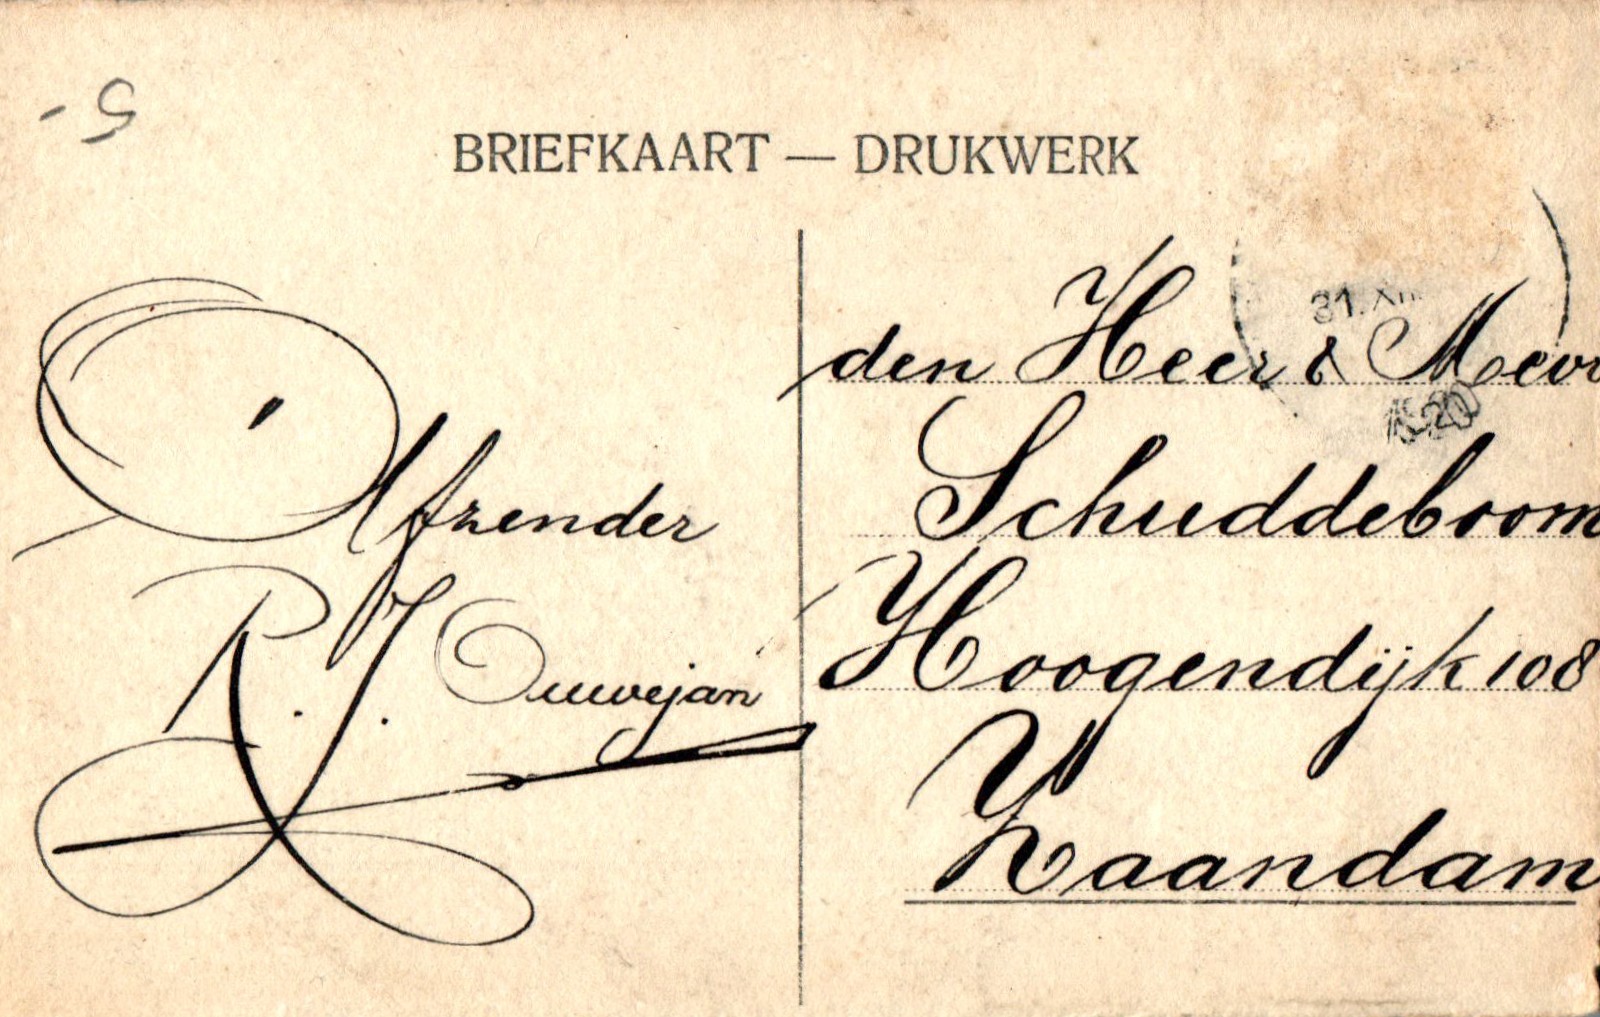 - 5
BRIEFKAART — DRUKWERK
31.XII
den Heer & Mevr
Schuddeboom
Hoogendijk 108
Zaandam
Afzender
R. J. Ouwejan